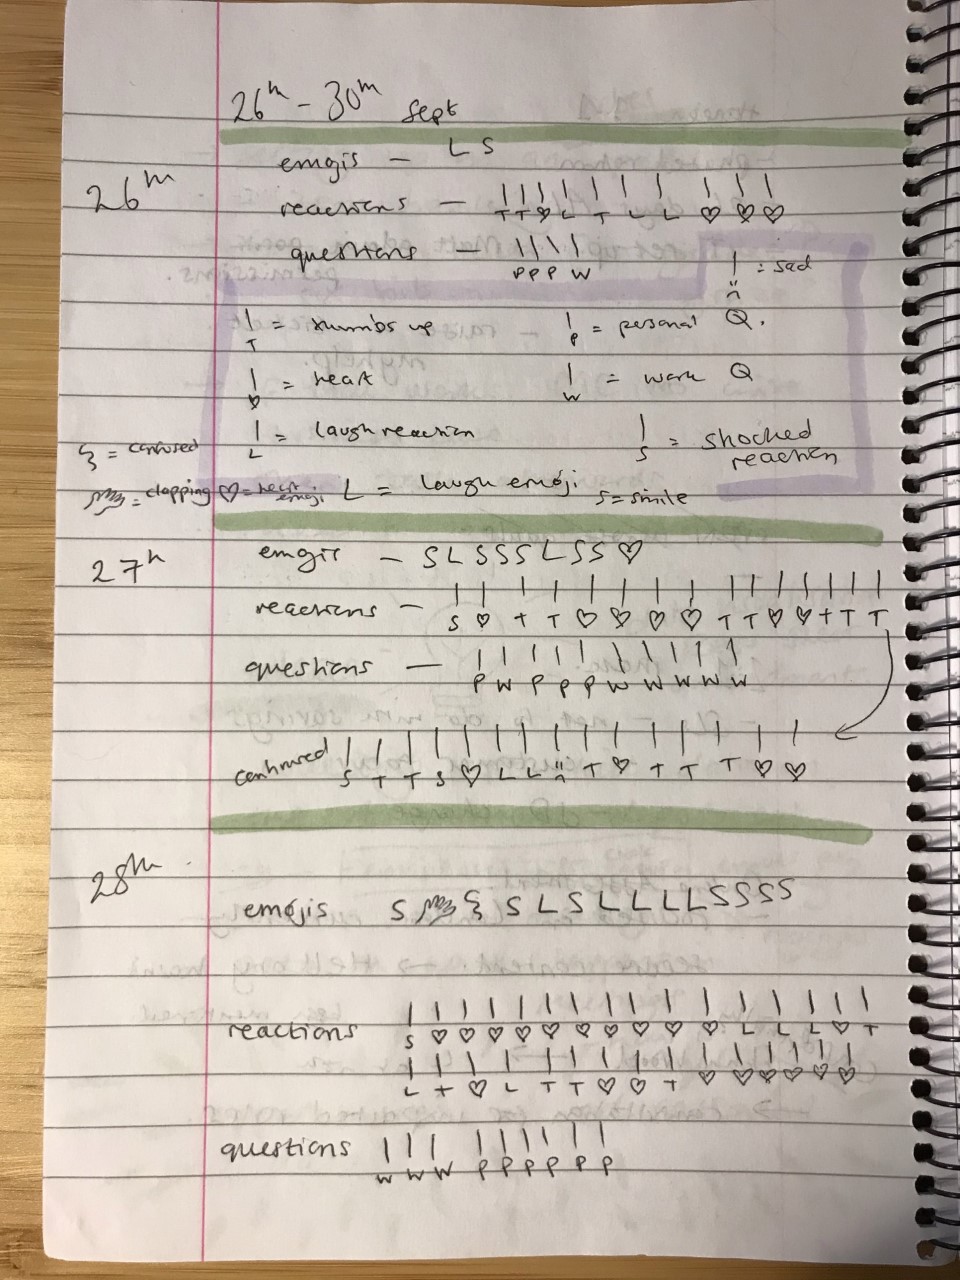 26th - 30th Sept
emojis - L S
26th
reactions - T T ♡ L T L L ♡ ♡ ♡
questions - P P P W
| = sad
| T = thumbs up
| P = personal Q.
| ♡ = heart
| W = work Q
| L = laugh reaction
| S = shocked reaction
ξ = confused
= clapping ♡ = heart emoji L = laugh emoji S = smile
27th
emojis - S L S S S L S S ♡
reactions - S ♡ T T ♡ ♡ ♡ ♡ T T ♡ ♡ T T T
questions - P W P P P W W W W W
continued S T T S ♡ L L :( T ♡ T T T ♡ ♡
28th
emojis S ξ S L S L L L L S S S S
reactions S ♡ ♡ ♡ ♡ ♡ ♡ ♡ ♡ ♡ L L L ♡ T
L T ♡ L T T ♡ ♡ T ♡ ♡ ♡ ♡ ♡ ♡
questions W W W P P P P P P